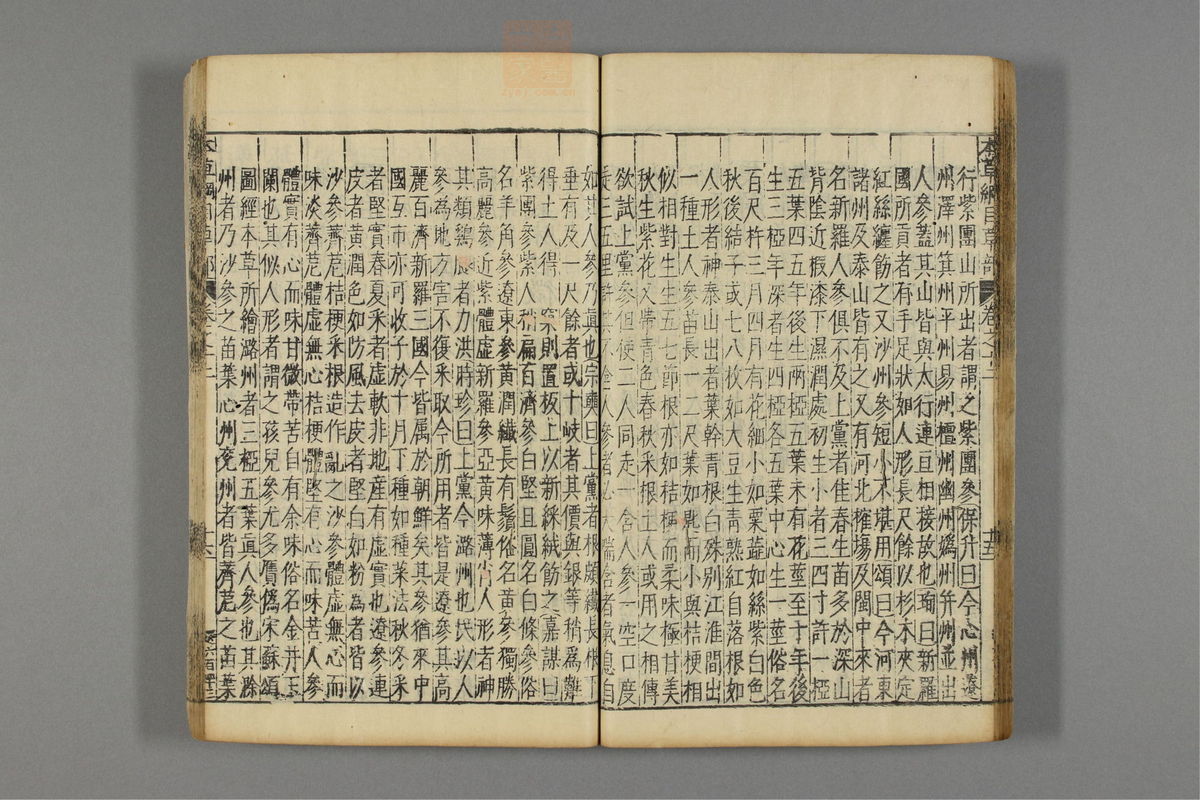 本草綱目草部 卷之十二 十五
行紫團山所出者謂之紫團參保升曰今沁州遼
州澤州箕州平州易州檀州幽州媯州并州並出
人參蓋其山皆與太行連亘相接故也珣曰新羅
國所貢者有手足狀如人形長尺餘以杉木夾定
紅絲纏飾之又沙州參短小不堪用頌曰今河東
諸州及泰山皆有之又有河北榷場及閩中來者
名新羅人參俱不及上黨者佳春生苗多於深山
背陰近椵漆下濕潤處初生小者三四寸許一椏
五葉四五年後生兩椏五葉未有花莖至十年後
生三椏年深者生四椏各五葉中心生一莖俗名
百尺杵三月四月有花細小如粟蕊如絲紫白色
秋後結子或七八枚如大豆生青熟紅自落根如
人形者神泰山出者葉幹青根白殊別江淮間出
一種土人參苗長一二尺葉如匙而小與桔梗相
似相對生生五七節根亦如桔梗而柔味極甘美
秋生紫花又帶青色春秋采根土人或用之相傳
欲試上黨參但使二人同走一含人參一空口度
走三五里許其不含人參者必大喘含者氣息自
如其人參乃真也宗奭曰上黨者根頗纖長根下
垂有及一尺餘者或十岐者其價與銀等稍為難
得土人得一窠則置板上以新綵絨飾之嘉謨曰
紫團參紫大稍扁百濟參白堅且圓名白條參俗
名羊角參遼東參黃潤纖長有鬚俗名黃參獨勝
高麗參近紫體虛新羅參亞黃味薄 人形者神
其類鷄 者力洪時珍曰上黨今潞州也民以人
參為地方害不復采取今所用者皆是遼參其高
麗百濟新羅三國今皆屬於朝鮮矣其參猶來中
國互市亦可收子於十月下種如種菜法秋冬采
者堅實春夏采者虛軟非地產有虛實也遼參連
皮者黃潤色如防風去皮者堅白如粉 為者皆以
沙參薺苨桔梗采根造作亂之沙參體虛無心而
味淡薺苨體虛無心桔梗體堅有心而味苦人參
體實有心而味甘微帶苦自有餘味俗名金井玉
闌也其似人形者謂之孩兒參尤多贗偽宋蘇頌
圖經本草所繪潞州者三椏五葉真人參也其滁
州者乃沙參之苗葉沁州兗州者皆薺苨之苗葉
本草綱目草部 卷之十二 十六